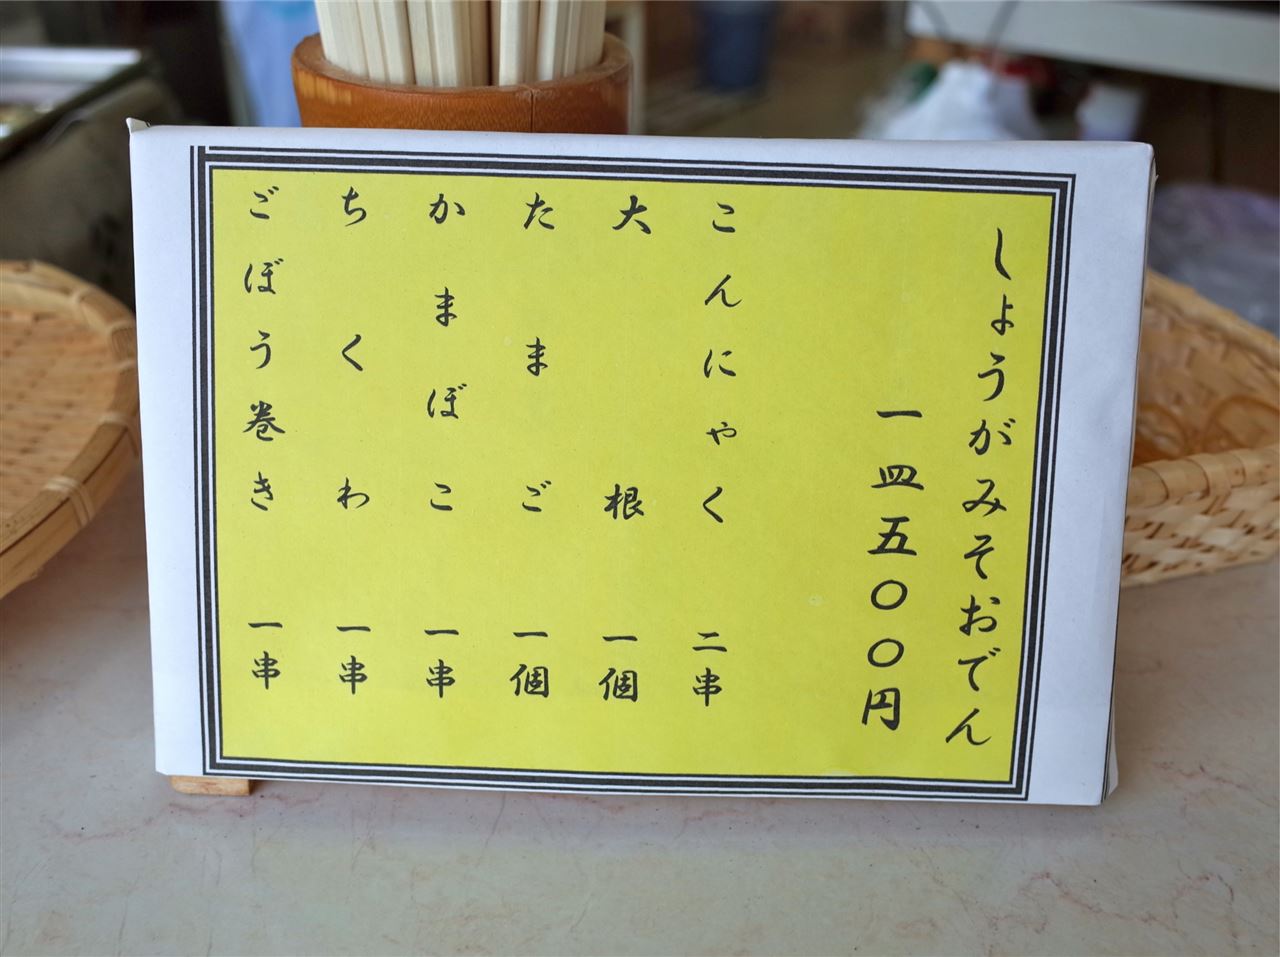 しょうがみそおでん
一皿五〇〇円
こんにゃく 二串
大根 一個
たまご 一個
かまぼこ 一串
ちくわ 一串
ごぼう巻き 一串